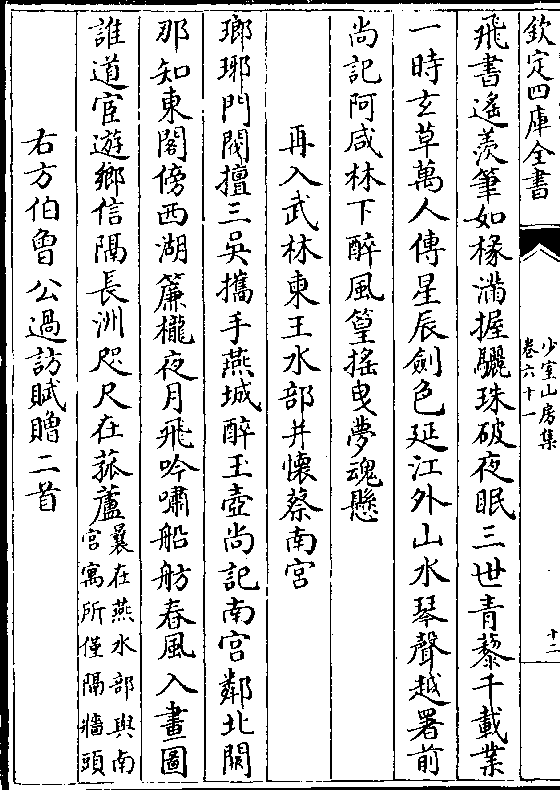 欽定四庫全書
少室山房集
卷六十一
十二
飛書遙羨筆如椽滿握驪珠破夜眠三世青藜千載業
一時玄草萬人傳星辰劍色延江外山水琴聲越署前
尚記阿咸林下醉風篁搖曳夢魂懸
再入武林柬王水部并懷蔡南宫
瑯琊門閥擅三吳攜手燕城醉玉壺尚記南宫鄰北闕
那知東閣傍西湖簾櫳夜月飛吟嘯船舫春風入畫圖
誰道宦遊鄉信隔長洲咫尺在菰蘆曩在燕水部與南
宫寓所僅隔牆頭
右方伯魯公過訪賦贈二首